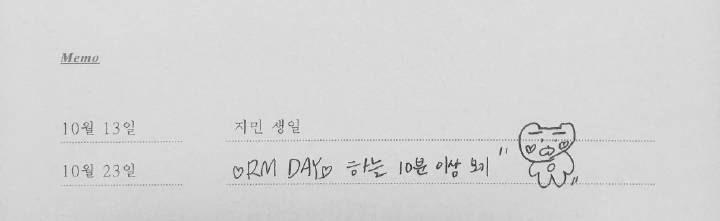 Memo
10월 13일 지민 생일
10월 23일 ♡RM DAY♡ 하늘 10분 이상 보기